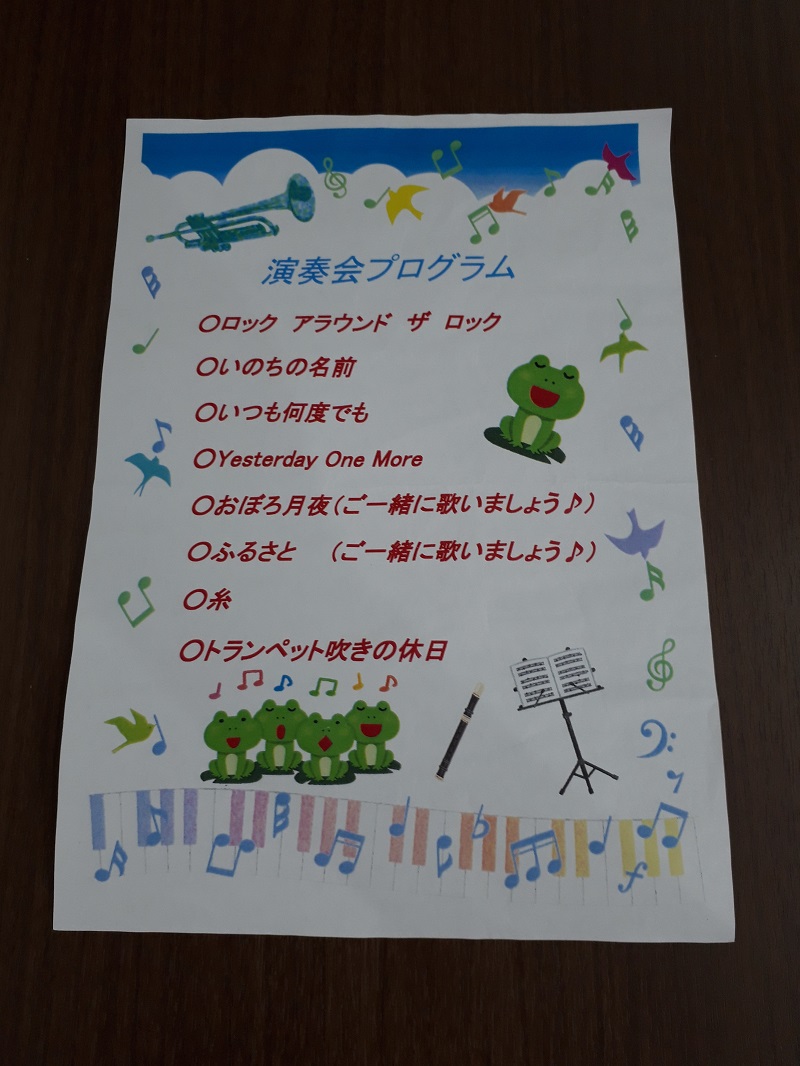 演奏会プログラム
〇ロック　アラウンド　ザ　ロック
〇いのちの名前
〇いつも何度でも
〇Yesterday One More
〇おぼろ月夜（ご一緒に歌いましょう♪）
〇ふるさと　（ご一緒に歌いましょう♪）
〇糸
〇トランペット吹きの休日